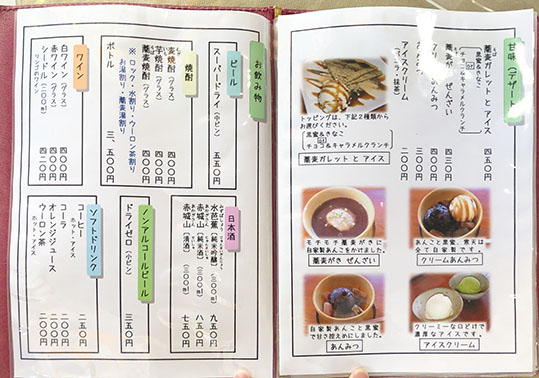 甘味(デザート)
蕎麦ガレットとアイス 四五〇円
黒蜜&きなこ
チョコ&キャラメルクランチ
蕎麦がき ぜんざい 四三〇円
あんみつ
アイスクリーム
抹茶)
トッピングは、下記2種類から
お選びください。
黒蜜&きなこ
チョコ&キャラメルクランチ
蕎麦ガレットとアイス
モチモチ蕎麦がきに
自家製あんこをかけました。
蕎麦がき ぜんざい
あんこと黒蜜、寒天は
全て自家製です。
クリームあんみつ
自家製あんこと黒蜜
で甘さ控えめにしました。
あんみつ
クリーミーな口どけで
濃厚なアイスです。
アイスクリーム
お飲み物
ビール
スーパードライ(中ビン) 五五〇円
焼酎
麦焼酎(グラス) 四〇〇円
芋焼酎(グラス) 四〇〇円
蕎麦焼酎(グラス) 四〇〇円
ボトル 三、五〇〇円
※ロック・水割り・ウーロン茶割り
お湯割り・蕎麦湯割り
ワイン
白ワイン(グラス) 四〇〇円
赤ワイン(グラス) 四〇〇円
シードル(二〇〇㎖) 四二〇円
リンゴのワイン
日本酒
水芭蕉(純米吟醸)(三〇〇㎖) 九五〇円
赤城山(純米酒)(三〇〇㎖) 八五〇円
赤城山(清酒)(三〇〇㎖) 七五〇円
ノンアルコールビール
ドライゼロ(小ビン) 三五〇円
ソフトドリンク
コーヒー 二五〇円
ホット・アイス
コーラ 二〇〇円
オレンジジュース 二〇〇円
ウーロン茶 二〇〇円
ホット・アイス